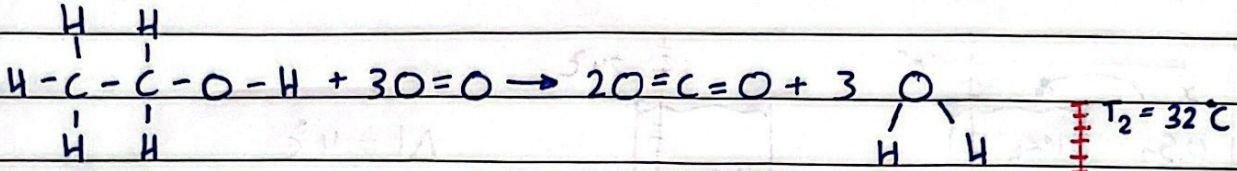 H H
H - C - C - O - H + 3O=O → 2O=C=O + 3 O
H H H H T₂ = 32°C